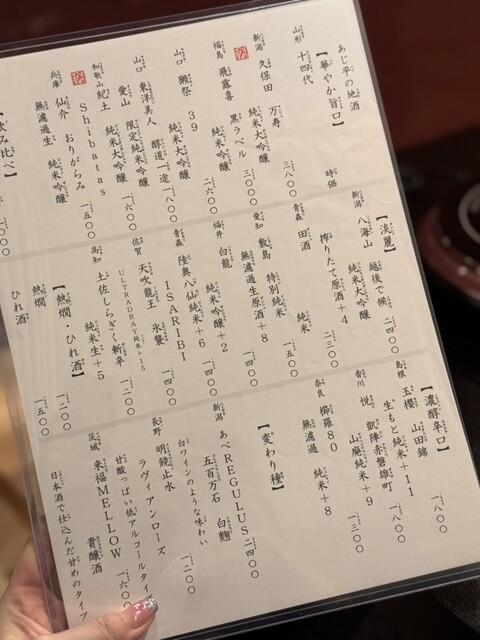 あじ平の地酒
【華やか旨口】
山形 十四代 時価
新潟 久保田 万寿
純米大吟醸 三八〇〇
福島 飛露喜 黒ラベル
純米大吟醸 三〇〇〇
山口 獺祭 39
純米大吟醸 二六〇〇
山口 東洋美人 醇道一途
限定純米吟醸 一八〇〇
愛山 純米大吟醸 一六〇〇
和歌山 紀土 Shibata's
純米大吟醸
兵庫 仙介 おりがらみ 一五〇〇
無濾過生 純米吟醸
【飲み比べ】
【淡麗】
新潟 八海山 越後で候 二四〇〇
純米大吟醸
搾りたて原酒+4 二三〇〇
青森 田酒 純米 一五〇〇
愛知 敷島 特別純米
無濾過生原酒+8 一四〇〇
福井 白龍 純米吟醸+2 一四〇〇
青森 陸奥八仙 純米+6
ISARIBI 一四〇〇
佐賀 天吹 龍王 氷襲
ULTRADRAY純米+15 一二〇〇
高知 土佐しらぎく 斬辛
純米生+5 一二〇〇
【熱燗・ひれ酒】
熱燗
ひれ酒 一五〇〇
【濃醇辛口】
島根 玉櫻 山田錦 一八〇〇
生もと純米+11
香川 悦 凱陣 赤磐雄町 一八〇〇
山廃純米+9
奈良 櫛羅80 一三〇〇
無濾過 純米+8
【変わり種】
新潟 あべREGULUS 二四〇〇
五百万石 白麹
白ワインのような味わい
長野 明鏡止水 一二〇〇
ラヴィアンローズ
甘酸っぱい低アルコールタイ
茨城 来福MELLOW 一六〇〇
貴醸酒
日本酒で仕込んだ甘めのタイプ